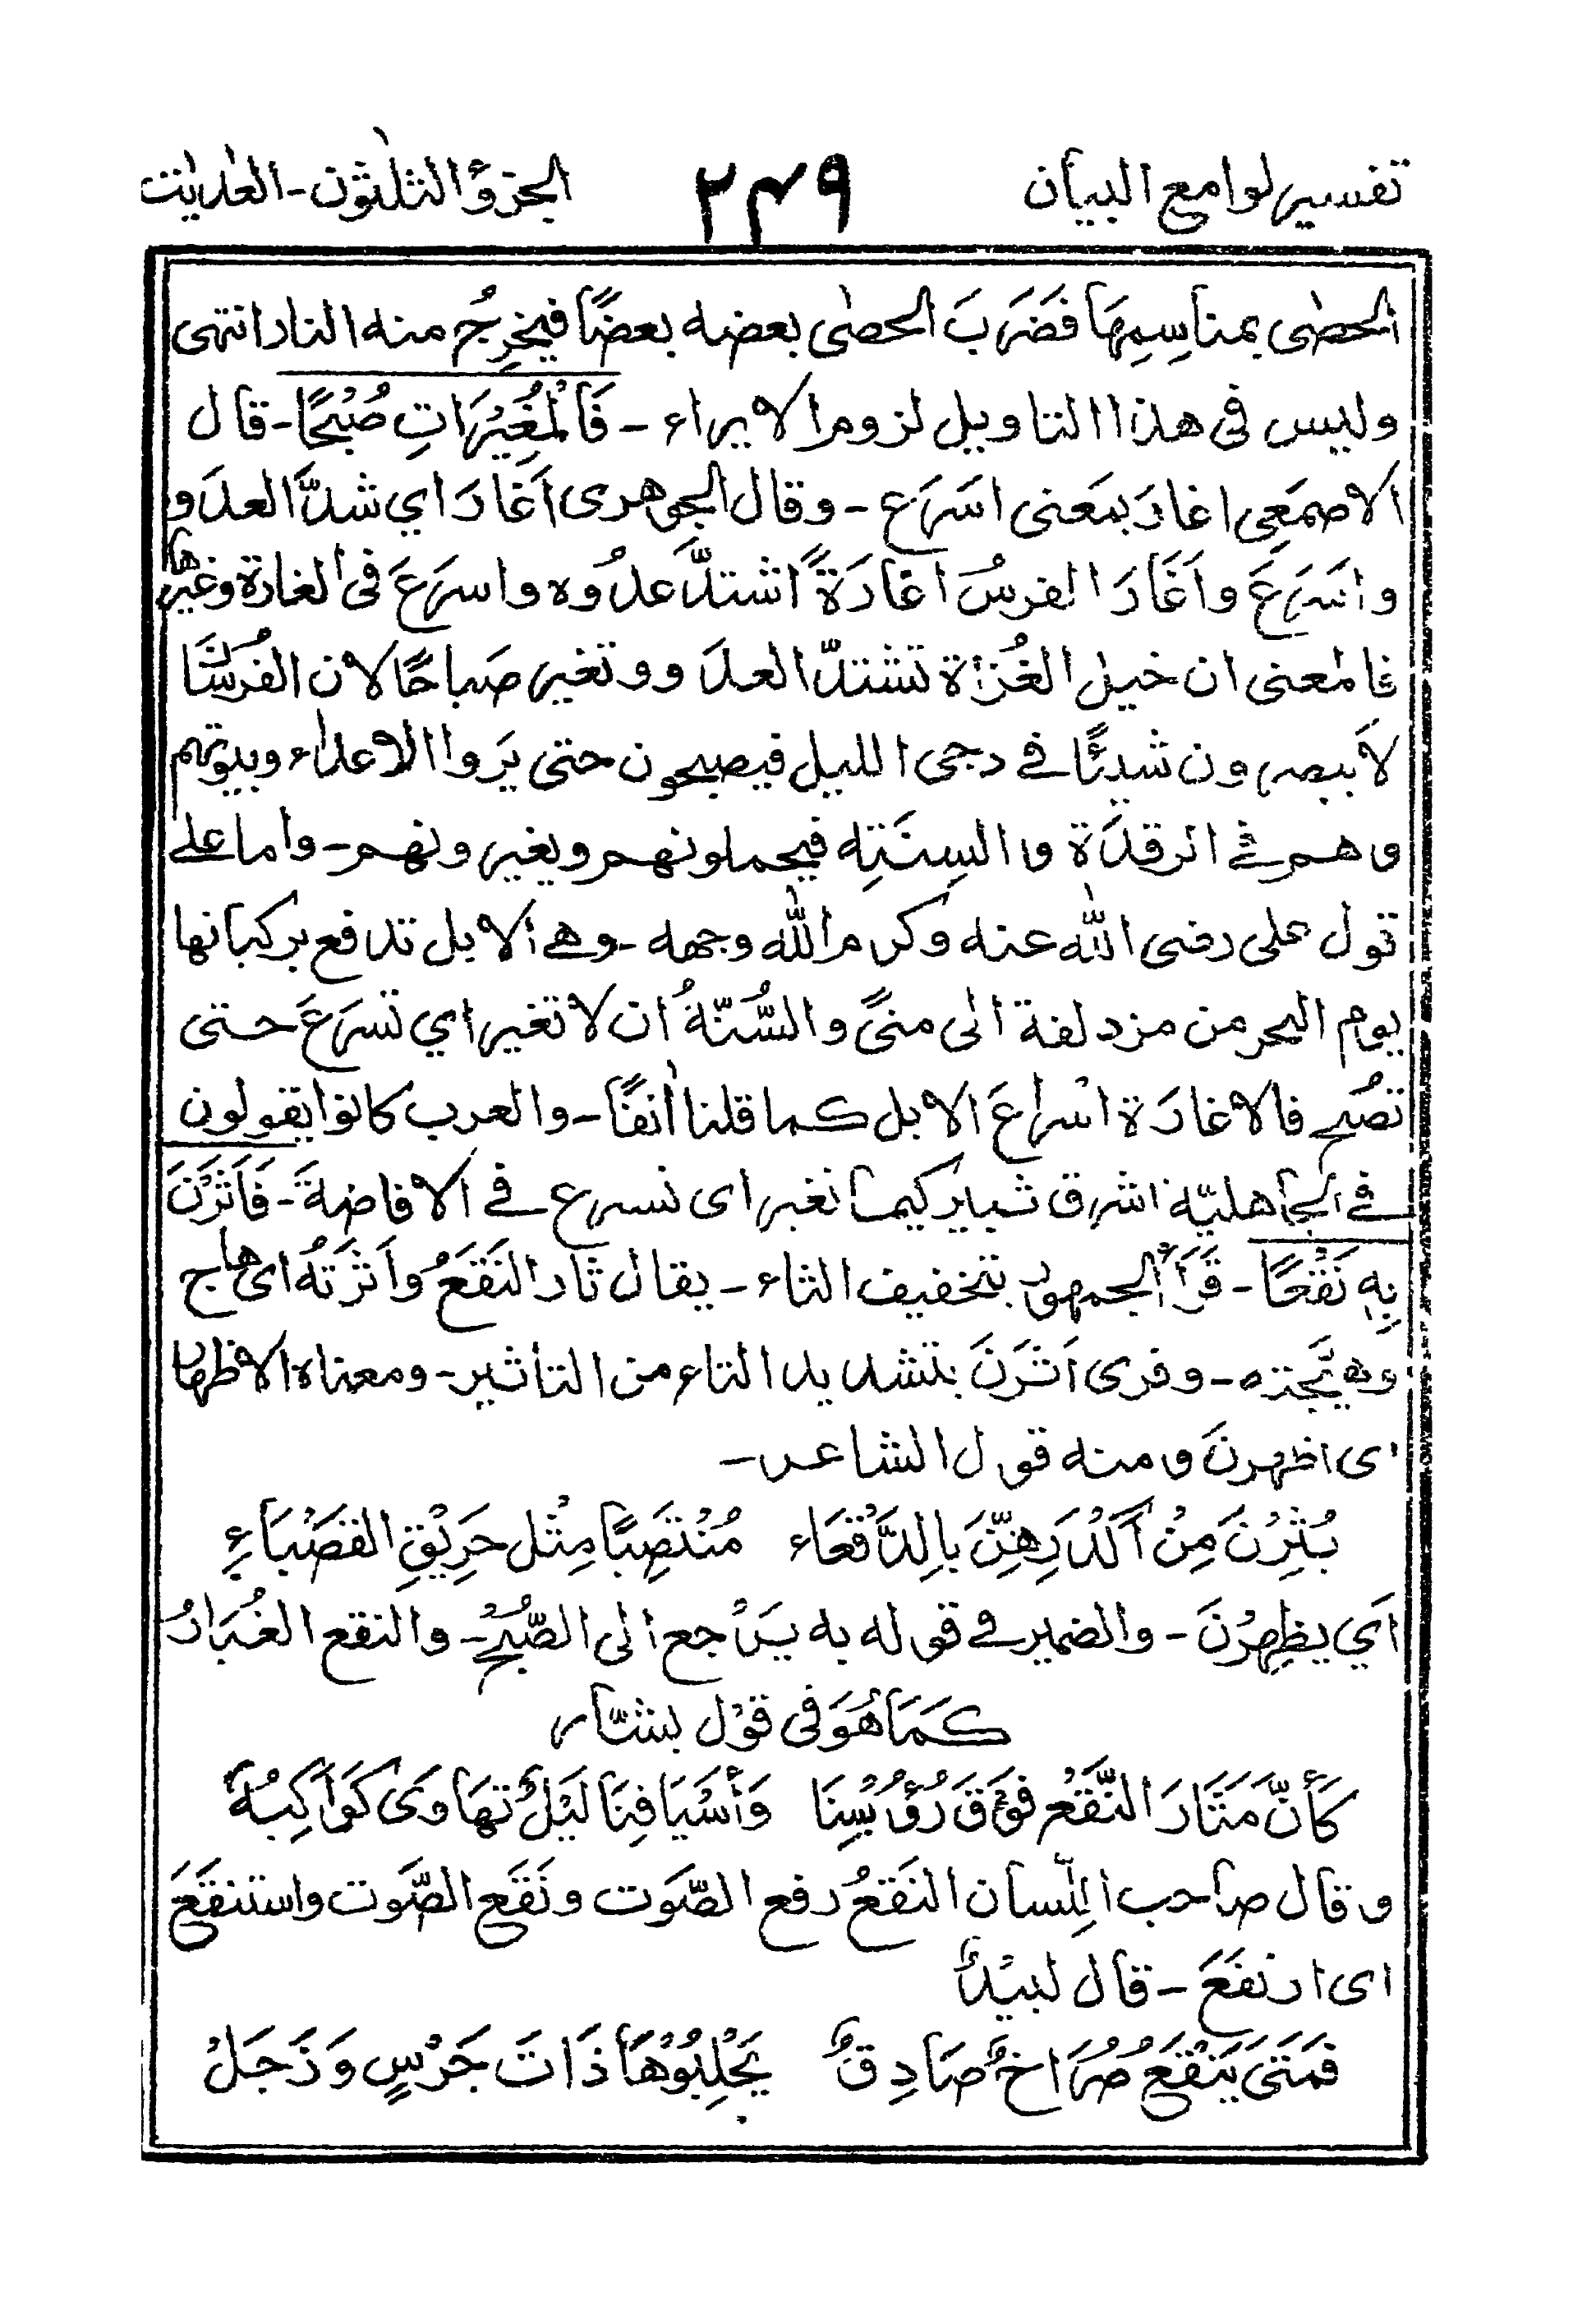 تفسير لوامع البيان ٢٤٩ الجزؤ الثلٰثون - العٰديٰت
الحصٰى بمناسِمِهَا فَضَرَبَ الحصٰى بعضه بعضًا فيخرِجُ منه النار انتهى
وليس فى هذا التاويل لزوم الايراء - فَالْمُغِيْرَاتِ صُبْحًا - قال
الاصمَعِى اغارَ بمَعنى اسَرَع - وقال الجوهرى اَغَارَ اي شدَّ العدَو
واَسَرَعَ واَغَارَ الفرسُ اغَارَةً اشتدَّ عدُوه واسرَعَ فى الغارة وغيرها
فالمعنى ان خيل الغُزاة تشتدّ العدَ وو تغير صَباحًا لان الفُرسَّا
لاَ يبصرون شيئًا فے دجى الليل فيصبحون حتى يَروا الاعداء وبيوتهم
وهم فے الرقدَة والسِنَتِه فيحملونهم ويغيرونهم - واما علے
قول على رضى الله عنه وكرم الله وجهه - وهے الابل تدفع بركبانها
يوم النحر من مزدلفة الى منىً والسُّنّةُ ان لا تغير اي تسرَعَ حتى
تصُبح فالاغارَة اسراعَ الابل كما قلنا اٰنفًا - والعرب كانوا يقولون
فے الجاهليّة اشرق ثبير كيما نغير اى نسرع فے الافاضةَ - فَاَثَرْنَ
بِهٖ نَقْعًا - قَرَأَ الجمهورُ بتخفيف الثاء - يقال ثار النَقَعُ واَثَرَتُه اى هاج
وهيَّجته - وقرى اَثَّرَنَ بتشديد الثاء من التأثير - ومعناه الاظهار
اى اظهرنَ ومنه قول الشاعر -
يُثِرْنَ مِنْ اَكْدَرِهِنَّ بِالدَّقْعَاء مُنْتَصِبًا مِثْل حَرِيْقِ القَصْبَاءِ
اَي يظهِرْنَ - والضمير فے قوله به يَرْجع الى الصُّبْحِ - والنقع الغُبَارُ
كَمَا هُوَ فى قوْل بشّار
كَأَنَّ مَثَارَ النَّقْعِ فَوْقَ رُؤُسِنَا وَأَسْيَافِنَا لَيْلٌ تهَاوىٰ كَوَاكِبُهٗ
وقال صاحب اللِّسان النَقعُ رفع الصَّوَت ونَقَع الصَّوت واستنقَعَ
اى ارتفَعَ - قال لبيدٌ
فمَتىٰ يَنْقَعْ صُرَاخٌ صَادِقٌ يَحْلِبُوْهَا ذَاتَ جَرْسٍ وَزَجَلْ